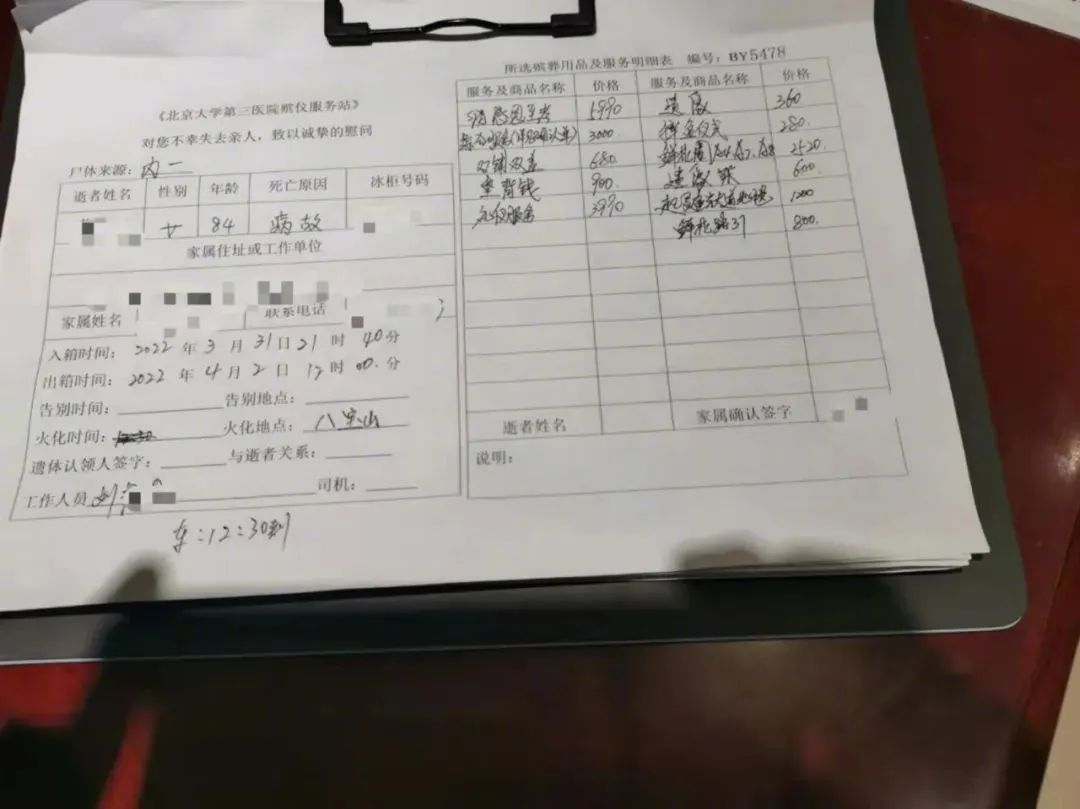 《北京大学第三医院殡仪服务站》
对您不幸失去亲人，致以诚挚的慰问
尸体来源：内一
逝者姓名 性别 年龄 死亡原因 冰柜号码
女 84 病故
家属住址或工作单位
家属姓名 联系电话
入箱时间：2022年3月31日21时40分
出箱时间：2022年4月2日12时00分
告别时间： 告别地点：
火化时间： 火化地点：八宝山
遗体认领人签字： 与逝者关系：
工作人员 司机：
车:12:30到
所选殡葬用品及服务明细表 编号：BY5478
服务及商品名称 价格 服务及商品名称 价格
5990 遗像 360
3000 仪式 280
双铺双盖 680 鲜花圈 2520
垫背钱 900 遗像架 600
礼仪服务 3990 1200
鲜花 800
逝者姓名 家属确认签字
说明：